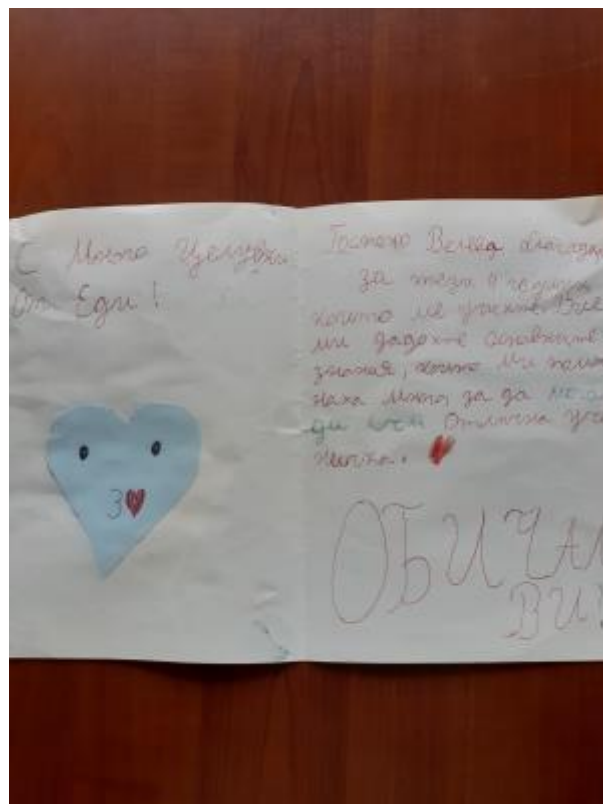 С много целувки
от Еди!
3
Госпожо Велева благодаря
за тези 4 години
които ме учихте. Вие
ми дадохте основните
знания, които ми помог
наха много, за да
ди съм отлична уче
ничка.
ОБИЧАМ
ВИ